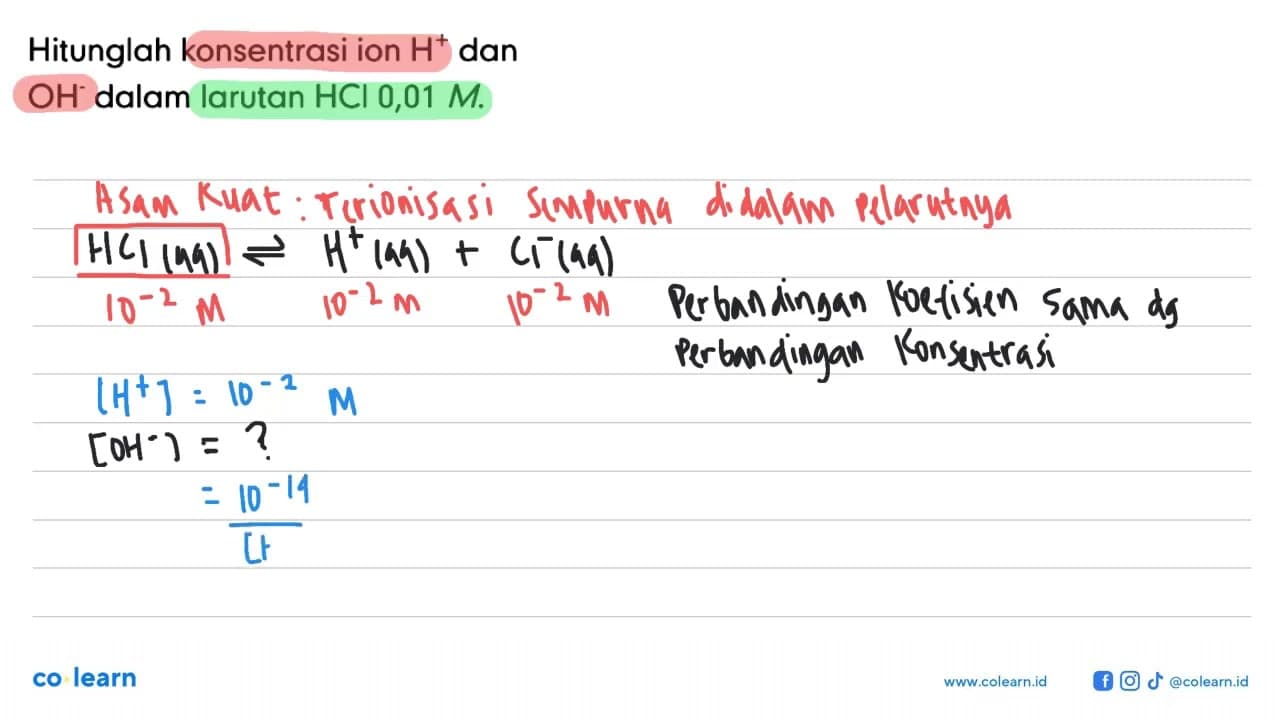 Hitunglah konsentrasi ion H⁺ dan
OH⁻ dalam larutan HCl 0,01 M.
Asam Kuat : Terionisasi Sempurna didalam pelarutnya
HCl (aq) ⇌ H⁺ (aq) + Cl⁻ (aq)
10⁻² M 10⁻² M 10⁻² M
Perbandingan Koefisien sama dg
Perbandingan Konsentrasi
[H⁺] = 10⁻² M
[OH⁻] = ?
= 10⁻¹⁴
[H
co learn
www.colearn.id @colearn.id